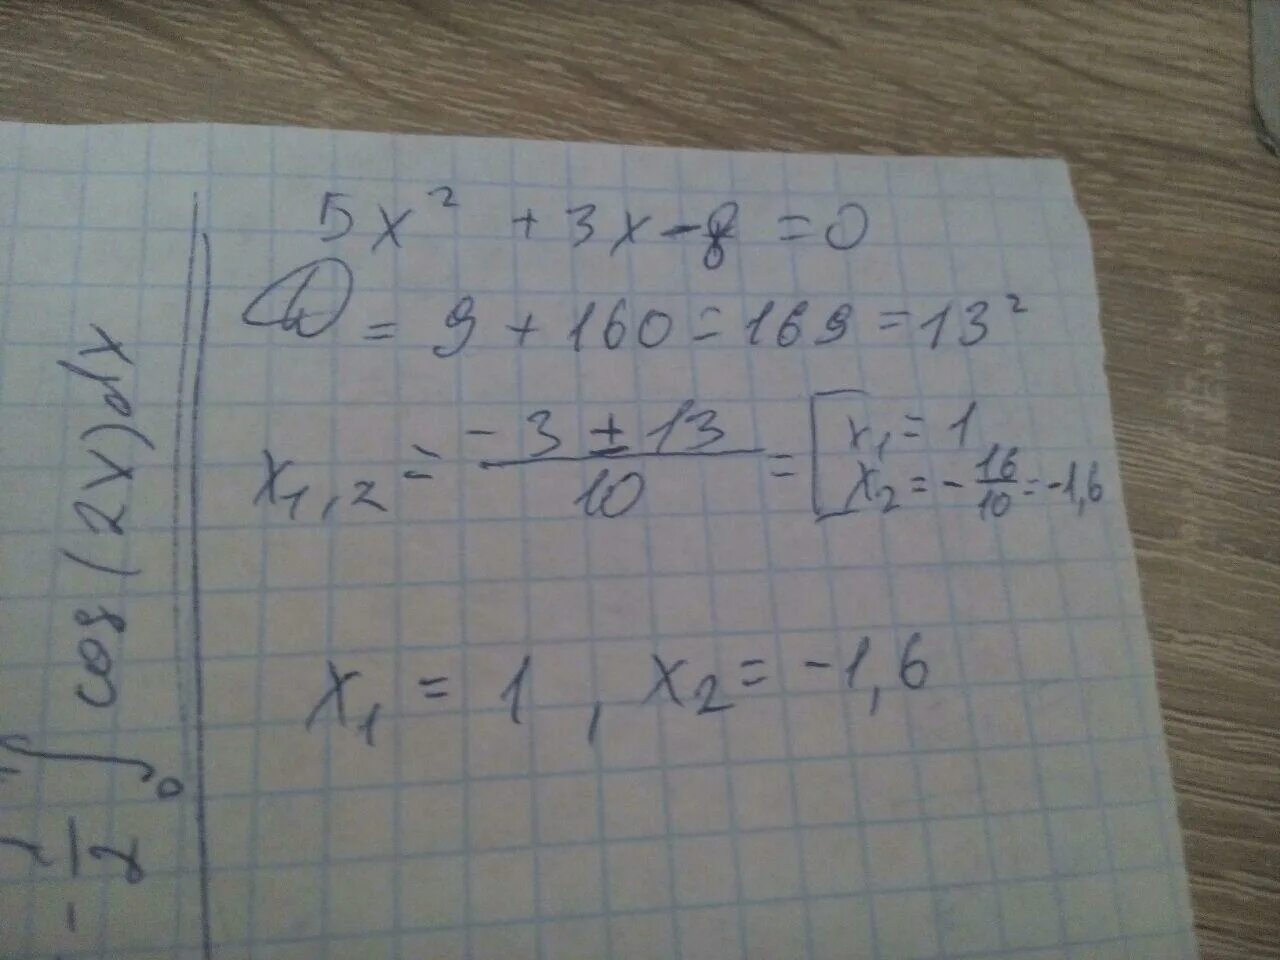 5x² + 3x - 8 = 0
D = 9 + 160 = 169 = 13²
x₁,₂ = (-3 ± 13)/10 = [x₁ = 1
x₂ = -16/10 = -1,6
x₁ = 1, x₂ = -1,6
∫₀ cos(2x)dx